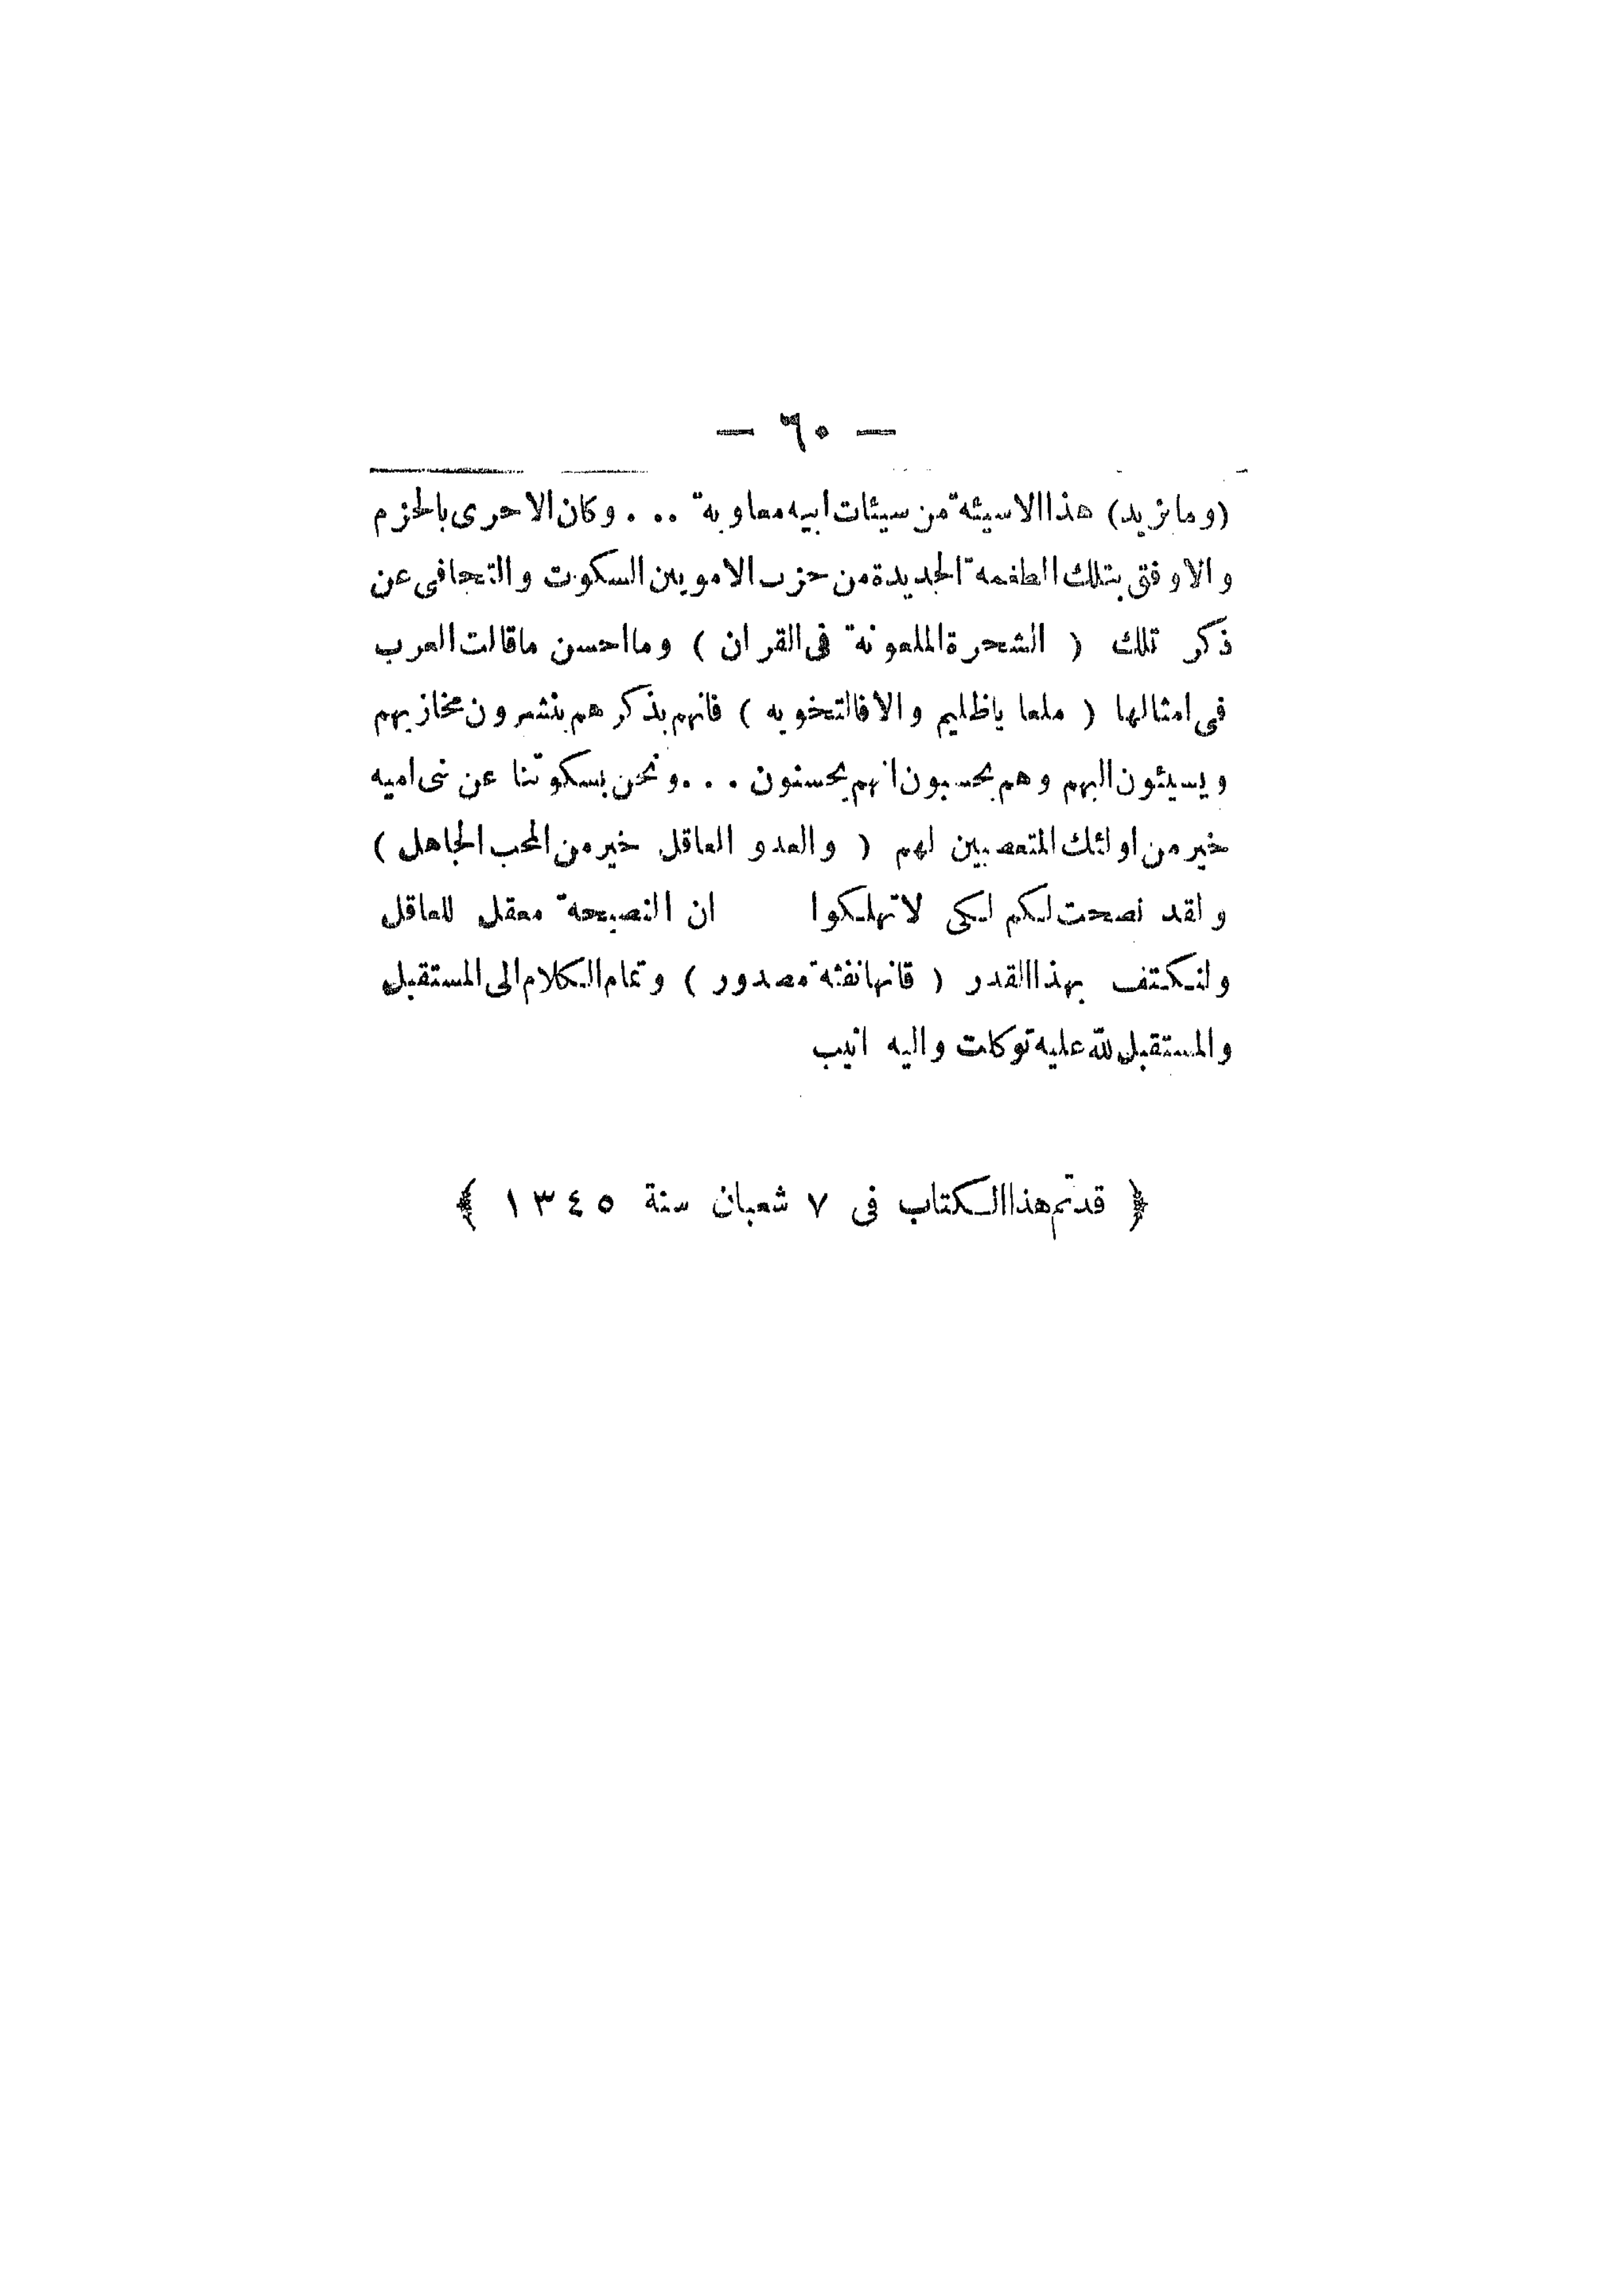 — ٦٠ —
(وما يزيد) هذا الا سيئة من سيئات ابيه معاوية . . . وكان الاحرى بالحزم
والاوفق بتلك الطغمة الجديدة من حزب الامويين السكوت والتجافي عن
ذكر تلك ( الشجرة الملعونة في القران ) وما احسن ما قالت العرب
في امثالها ( ملعا يا ظليم والا فالتخويه ) فانهم بذكرهم ينشرون مخازيهم
ويسيئون اليهم وهم يحسبون انهم يحسنون . . . ونحن بسكوتنا عن بني اميه
خير من اولئك المتعصبين لهم ( والعدو العاقل خير من المحب الجاهل )
ولقد نصحت لكم لكي لا تهلكوا ان النصيحة معقل للعاقل
ولنكتف بهذا القدر ( فانها نفثة مصدور ) وتمام الكلام الى المستقبل
والمستقبل لله عليه توكلت واليه انيب
﴿ قد تم هذا الكتاب في ٧ شعبان سنة ١٣٤٥ ﴾